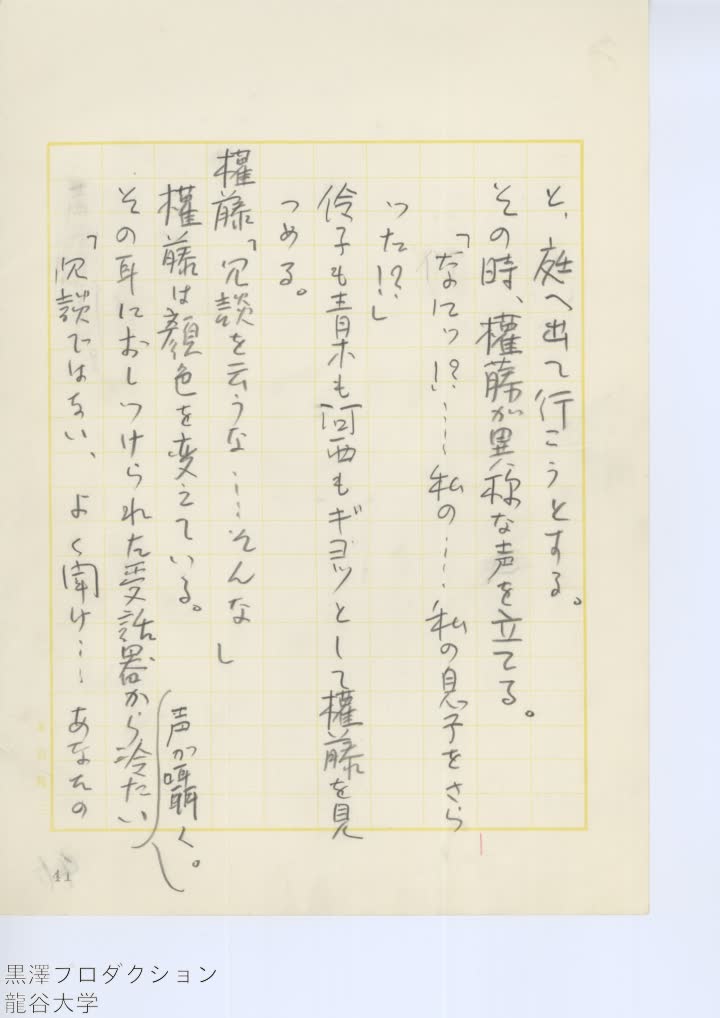 と、庭へ出て行こうとする。
その時、權藤が異様な声を立てる。
「なにッ!?……私の……私の息子をさら
った!?」
伶子も青木も河西もギヨッとして權藤を見
つめる。
權藤「冗談を云うな……そんな」
權藤は顔色を変えている。
その耳におしつけられた受話器から冷たい
声が囁く。
「冗談ではない、よく聞け……あなたの
41
黒澤プロダクション
龍谷大学